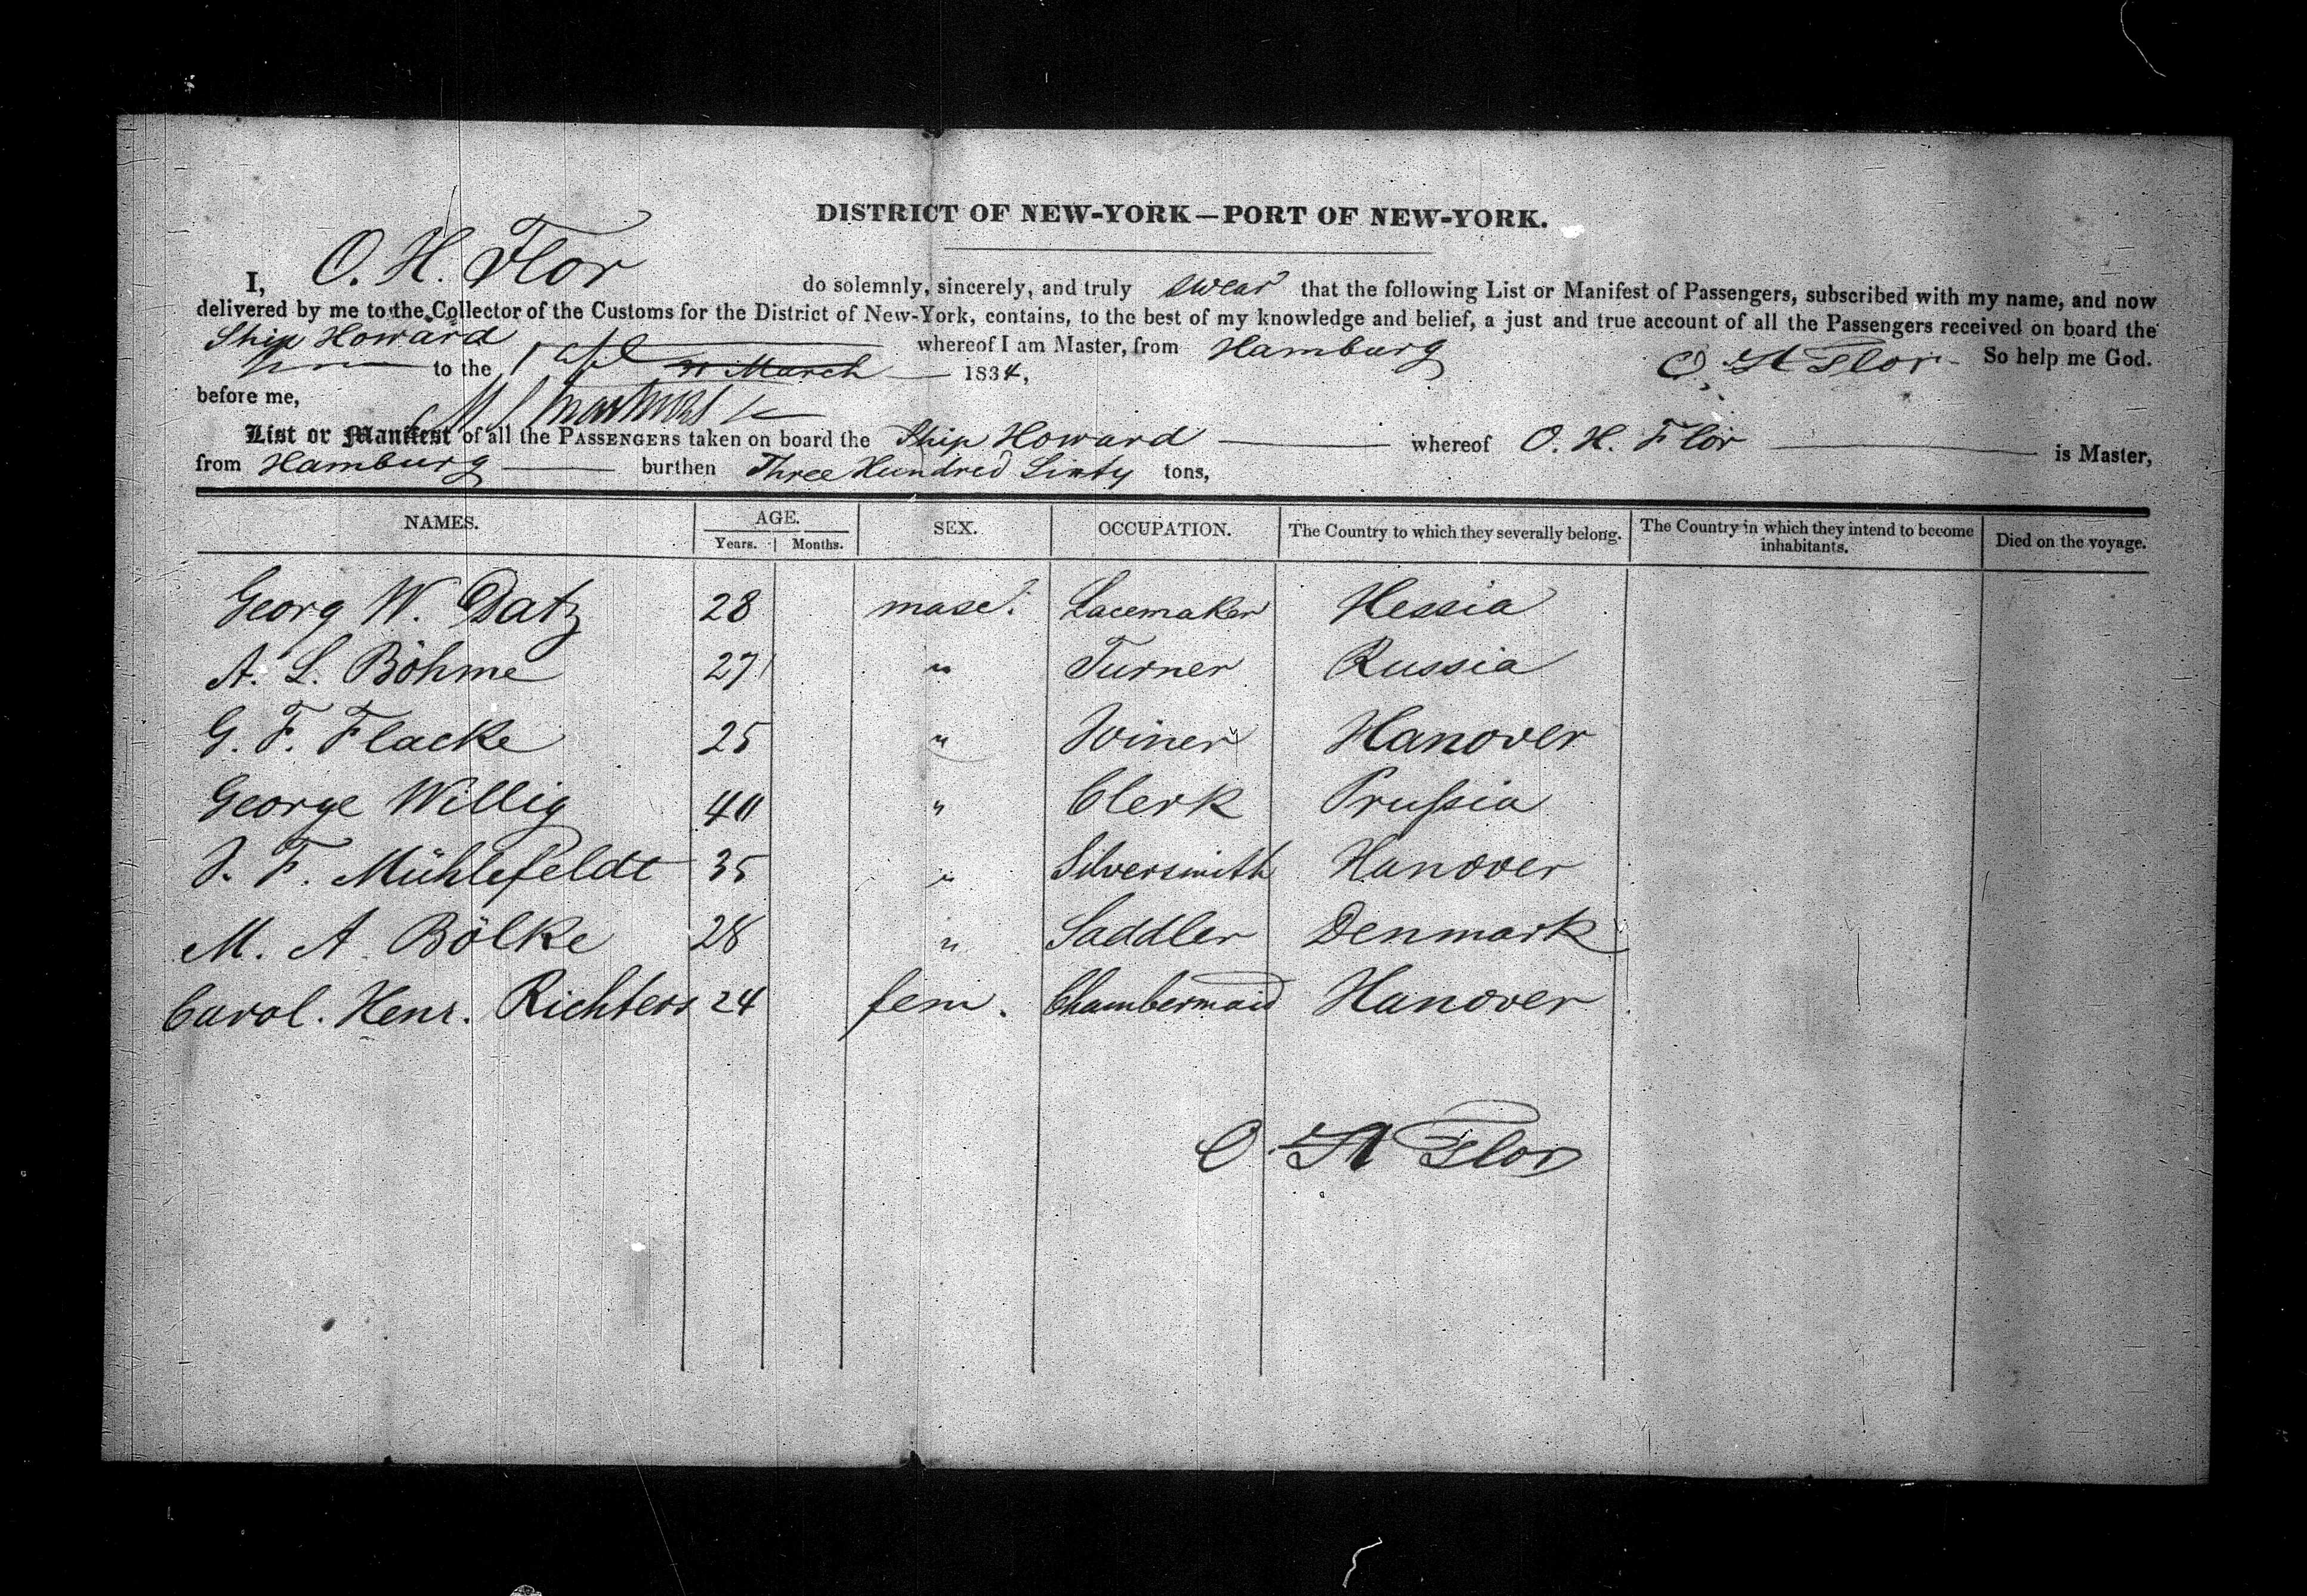 DISTRICT OF NEW-YORK—PORT OF NEW-YORK.
I, O. H. Flor do solemnly, sincerely, and truly swear that the following List or Manifest of Passengers, subscribed with my name, and now
delivered by me to the Collector of the Customs for the District of New-York, contains, to the best of my knowledge and belief, a just and true account of all the Passengers received on board the
Ship Howard whereof I am Master, from Hamburg O. H Flor So help me God.
to the 31 March 1834,
before me,
List or Manifest of all the PASSENGERS taken on board the Ship Howard whereof O. H. Flor is Master,
from Hamburg burthen Three Hundred Sixty tons,
NAMES. AGE. SEX. OCCUPATION. The Country to which they severally belong. The Country in which they intend to become inhabitants. Died on the voyage.
Years. Months.
Georg W. Datz 28 masc. Lacemaker Hessia
A. L. Böhme 27 " Turner Russia
G. F. Flacke 25 " Joiner Hanover
George Willig 40 " Clerk Prussia
J. F. Mühlefeldt 35 " Silversmith Hanover
M. A. Bölke 28 " Saddler Denmark
Carol. Henr. Richters 24 fem. Chambermaid Hanover
O. H Flor